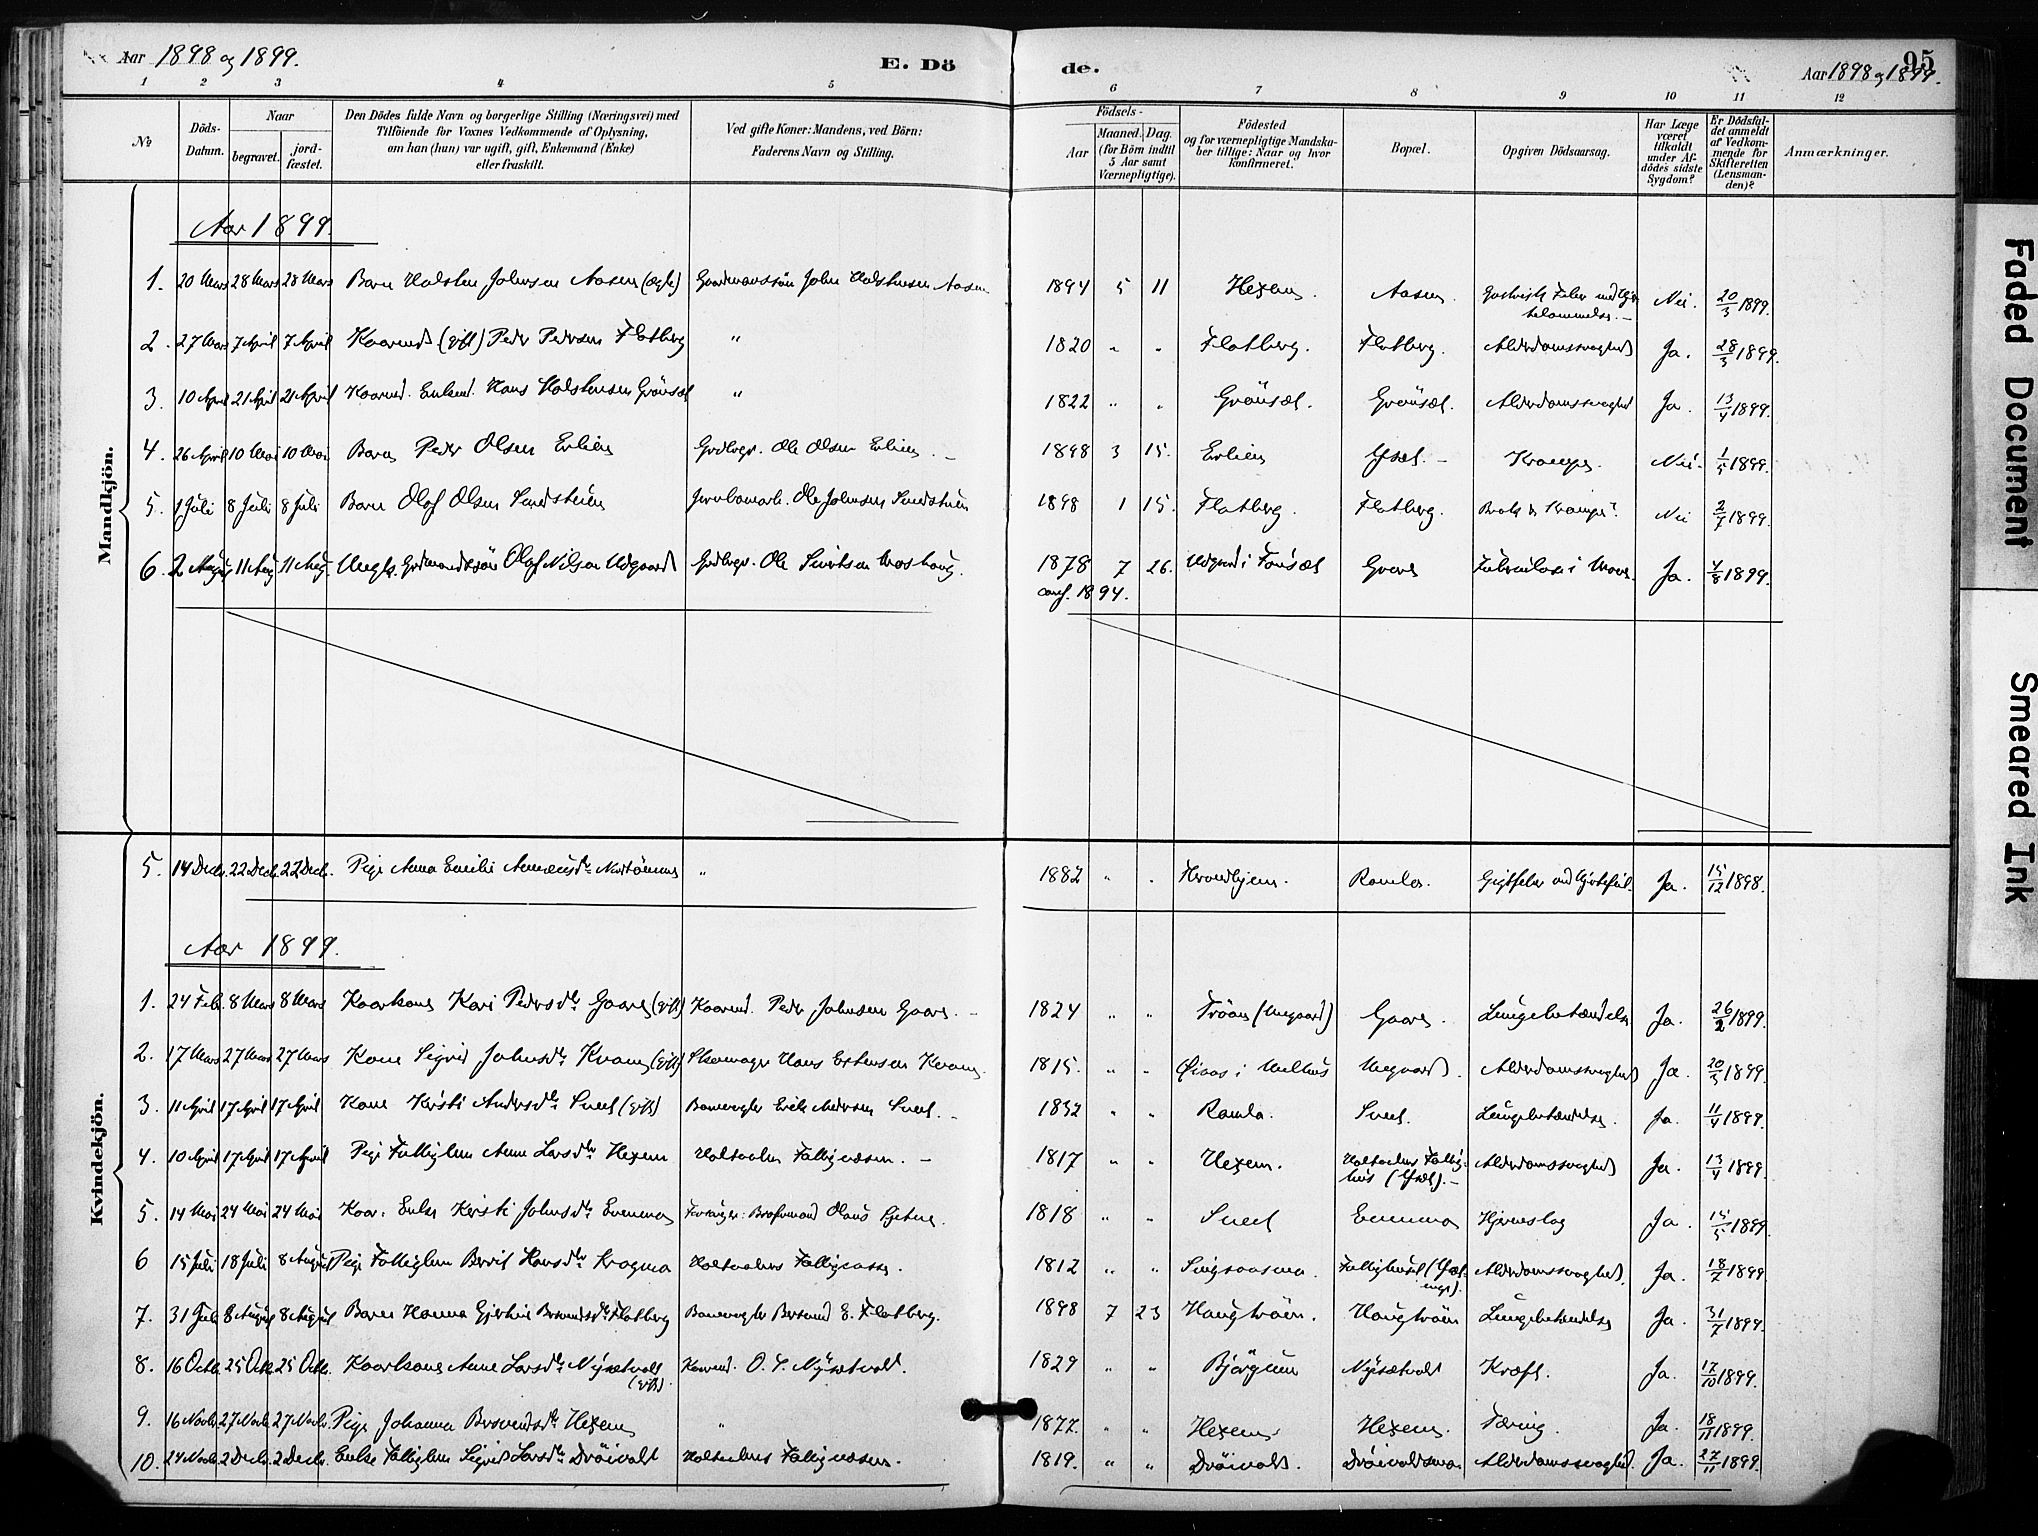 Aar 1898 og 1899.
E. Dö
de.
Aar 1898 og 1899.
95
1 2 3 4 5 6 7 8 9 10 11 12
№
Döds-Datum.
Naar
begravet.
jord-fæstet.
Den Dödes fulde Navn og borgerlige Stilling (Næringsvei) med
Tilföiende for Voxnes Vedkommende af Oplysning,
om han (hun) var ugift, gift, Enkemand (Enke)
eller fraskilt.
Ved gifte Koner: Mandens, ved Börn:
Faderens Navn og Stilling.
Födsels-
Aar
Maaned. Dag.
(for Börn indtil
5 Aar samt
Værnepligtige).
Födested
og for værnepligtige Mandska-
ber tillige: Naar og hvor
konfirmeret.
Bopæl.
Opgiven Dödsaarsag.
Har Læge
været
tilkaldt
under Af-
dödes sidste
Sygdom?
Er Dödsfal-
det anmeldt
af Vedkom-
mende for
Skifteretten
(Lensman-
den)?
Anmærkninger.
Mandkjön.
Aar 1899.
1. 20 Mars 28 Mars 28 Mars Barn Halsten Johnsen Aasen (ægte) Gaardmandssön John Halstensen Aasen 1894 5 11 Hexem. Aasen. Gastrisk Feber med Nei. 20/3 1899.
2. 27 Mars 7 April 7 April Kaarmd (gift) Peder Pedersen Flatberg " 1820 " " Flatberg. Flatberg. Alderdomssvaghed Ja. 28/3 1899.
3. 10 April 21 April 21 April Kaarmd. Enkemd. Hans Halstensen Grönsæt " 1822 " " Grönsæt. Grönsæt. Alderdomssvaghed Ja. 13/4 1899.
4. 26 April 10 Mai 10 Mai Barn Peder Olsen Evlien Grdbrgr. Ole Olsen Evlien. 1898 3 15. Evlien Krampe. Nei. 1/5 1899.
5. 1 Juli 8 Juli 8 Juli Barn Olaf Olsen Sundstuen Jernbanearb. Ole Johnsen Sundstuen 1898 1 15. Flatberg. Flatberg. Nei 2/7 1899.
6. 2 August 11 Aug 11 Aug. Ungk. Grdmandssön Olaf Nilsen Udgaard Grdbrgr. Ole Sivertsen Moshaug. 1878 7 26. Udgaard i Tönsæt Gaare Tuberculose i Ja. 4/8 1899.
conf. 1894.
Kvindekjön.
5. 14 Decbr. 22 Decbr. 22 Decbr. Pige Anna Emilie " 1882 " " Trondhjem. Ramlo. Gigtfeber med Hjertefeil. Ja. 15/12 1898.
Aar 1899.
1. 24 Febr 8 Mars 8 Mars Kaarkone Kari Pedersdtr Gaare (gift) Kaarmd. Peder Johnsen Gaare. 1824 " " Tröan (Ungaard) Gaare. Lungebetændelse Ja. 26/2 1899.
2. 17 Mars 27 Mars 27 Mars Kone Sigrid Johnsdtr Kvam (gift) Skomager Hans Estensen Kvam. 1815. " " Öiaas i Melhus Ungaard. Alderdomssvaghed Ja. 20/3 1899.
3. 11 April 17 April 17 April Kone Kristi Andersdtr Sveet (gift) Banevogter Erik Andersen Sveet. 1832 " " Ramlo. Sveet. Lungebetændelse. Ja. 11/4 1899.
4. 10 April 17 April 17 April Pige Fattiglem Anne Larsdtr Hexem Holtaalens Fattigvæsen. 1817 " " Hexem. Holtaalens Fattig- Alderdomssvaghed Ja. 13/4 1899.
hus
5. 14 Mai 24 Mai 24 Mai Kaar. Enke Kristi Johnsdtr Eunmo 1818 " " Sveet Eunmo Hjerneslag Ja. 15/5 1899.
6 15 Juli 18 Juli 8 August Pige Fattiglem Berit Hansdtr Kragmo Holtaalens Fattigvæsen. 1812 " " Singsaasmo. Fattighuset Alderdomssvaghed. Ja. 18/7 1899.
7. 31 Juli 8 August 8 August Barn Hanna Gjertine Bersvendsdtr Flatberg Banevogter Bersvend E. Flatberg. 1898 7 23 Haugtröen. Haugtröen Lungebetændelse Ja. 31/7 1899.
8. 16 Octbr. 25 Octbr. 25 Octbr. Kaarkone Anne Larsdtr Nysætvold Kaarmd. O. P. Nysætvold. 1829 " " Björgum Nysætvold Kræft. Ja. 17/10 1899.
(gift).
9. 16 Novbr. 27 Novbr. 27 Novbr. Pige Johanna Bersvendsdtr Hexem " 1877. " " Hexem. Hexem. Tæring. Ja. 18/11 1899.
10. 24 Novbr. 2 Decbr. 2 Decbr. Enke Fattiglem Sigrid Larsdtr Dröivold Holtaalens Fattigvæsen. 1819. " " Dröivold. Dröivoldsmo Alderdomssvaghed. Ja. 27/11 1899.
Faded Document
Smeared Ink